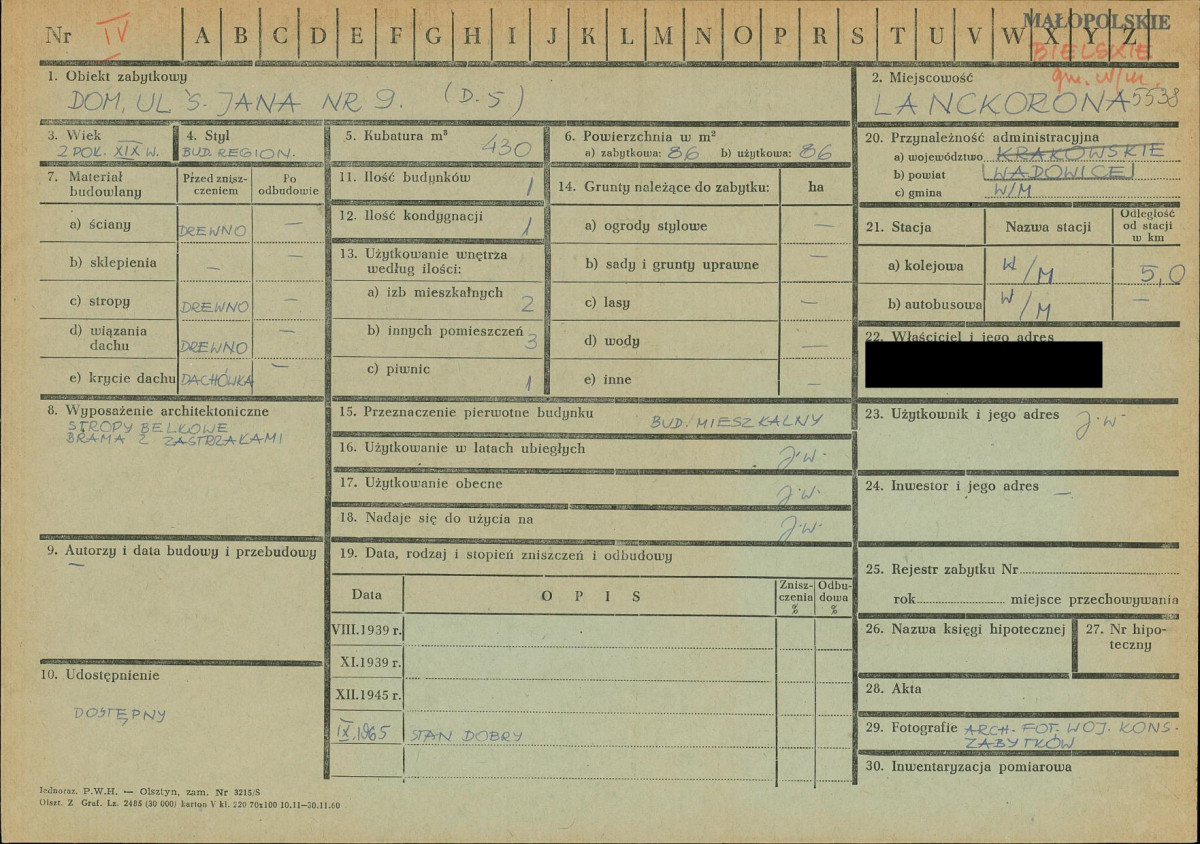 Nr IV A B C D E F G H I J K L M N O P R S T U V W X Y Z
MAŁOPOLSKIE
BIELSKIE
gm. w/m.
1. Obiekt zabytkowy
DOM, UL Ś. JANA NR 9. (D. 5)
2. Miejscowość
LANCKORONA 5538
3. Wiek
2 POŁ. XIX W.
4. Styl
BUD. REGION.
5. Kubatura m³
430
6. Powierzchnia w m²
a) zabytkowa: 86 b) użytkowa: 86
7. Materiał budowlany
Przed zniszczeniem
Po odbudowie
a) ściany DREWNO —
b) sklepienia — —
c) stropy DREWNO —
d) wiązania dachu DREWNO —
e) krycie dachu DACHÓWKA —
8. Wyposażenie architektoniczne
STROPY BELKOWE
BRAMA Z ZASTRZAŁAMI
9. Autorzy i data budowy i przebudowy
—
10. Udostępnienie
DOSTĘPNY
11. Ilość budynków 1
12. Ilość kondygnacji 1
13. Użytkowanie wnętrza
według ilości:
a) izb mieszkalnych 2
b) innych pomieszczeń 3
c) piwnic 1
14. Grunty należące do zabytku: ha
a) ogrody stylowe —
b) sady i grunty uprawne —
c) lasy —
d) wody —
e) inne —
15. Przeznaczenie pierwotne budynku
BUD. MIESZKALNY
16. Użytkowanie w latach ubiegłych
J.W.
17. Użytkowanie obecne
J.W.
18. Nadaje się do użycia na
J.W.
19. Data, rodzaj i stopień zniszczeń i odbudowy
Data O P I S Zniszczenia % Odbudowa %
VIII.1939 r.
XI.1939 r.
XII.1945 r.
IX.1965 STAN DOBRY
20. Przynależność administracyjna
a) województwo KRAKOWSKIE
b) powiat WADOWICE
c) gmina W/M
21. Stacja Nazwa stacji Odległość od stacji w km
a) kolejowa W/M 5,0
b) autobusowa W/M —
22. Właściciel i jego adres
23. Użytkownik i jego adres
J.W.
24. Inwestor i jego adres —
25. Rejestr zabytku Nr
rok miejsce przechowywania
26. Nazwa księgi hipotecznej
27. Nr hipoteczny
28. Akta
29. Fotografie ARCH. FOT. WOJ. KONS.
ZABYTKÓW
30. Inwentaryzacja pomiarowa
Jednoraz. P.W.H. — Olsztyn, zam. Nr 3215/S
Olszt. Z Graf. Lz. 2485 (30 000) karton V kl. 220 70x100 10.11—30.11.60